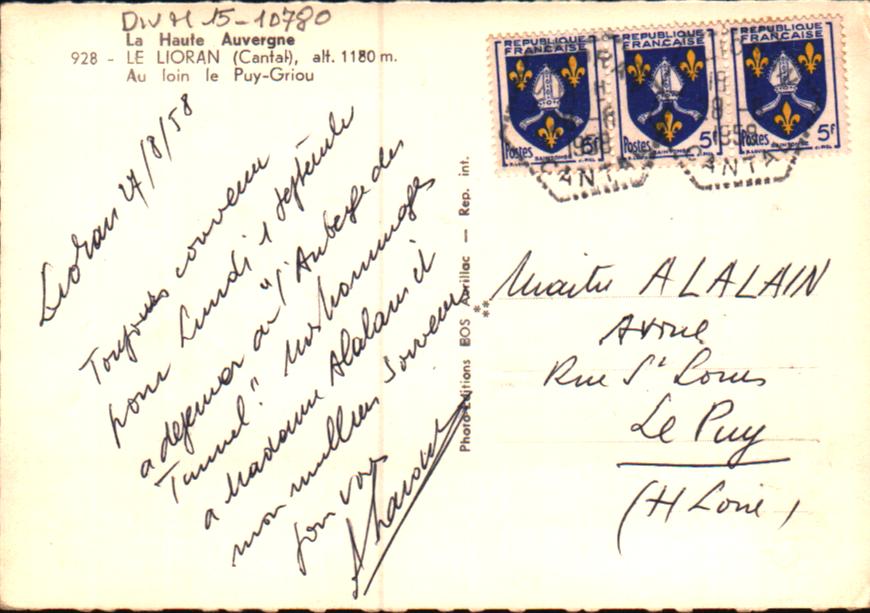 DIV M 15-10780
La Haute Auvergne
928 - LE LIORAN (Cantal), alt. 1180 m.
Au loin le Puy-Griou
Lioran 27/8/58
Toujours convenu
pour Lundi 1 septembre
a dejeuner au "l'Auberge des
Tunnel." Mes hommages
a Madame Alalain et
mon meilleur souvenir
pour vous
Photo-Editions BOS Aurillac — Rep. int.
REPUBLIQUE FRANÇAISE
Postes 5f
SAINTONGE
REPUBLIQUE FRANÇAISE
Postes 5f
SAINTONGE
REPUBLIQUE FRANÇAISE
Postes 5f
SAINTONGE
1958
CANTA
1958
CANTA
Maitre ALALAIN
Avoué
Rue St Louis
Le Puy
(H Loire)